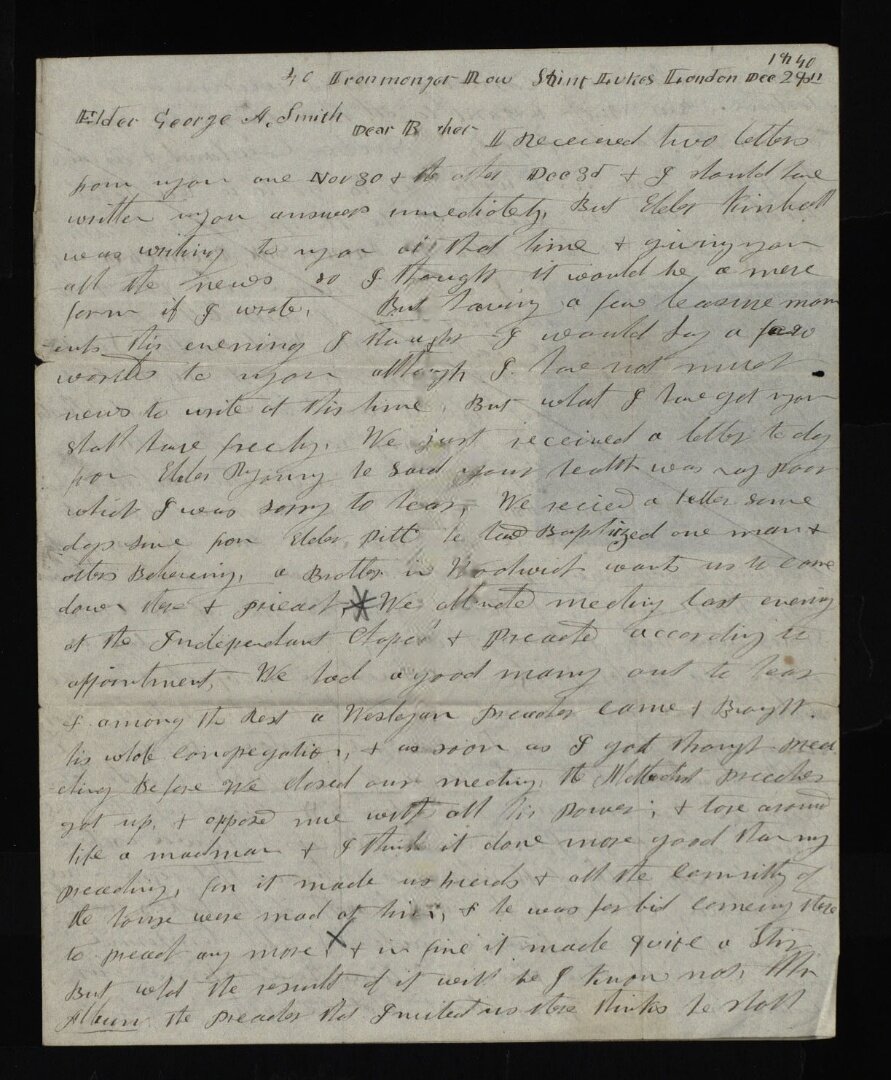 1840
40 Ironmonger Row Saint Lukes London Dec 29th
Elder George A. Smith
Dear Brother I Received two letters
from you one Nov 30 & the other Dec 3d & I should have
written you answers immediately, But Elder Kimball
was writing to you at that time & giving you
all the news so I thought it would be a mere
form if I wrote. But having a few leasure mom
ents this evening I thought I would say a few
words to you although I have not much
news to write at this time, But what I have got you
shall have freely. We just received a letter to day
from Elder Young he said your health was vary poor
which I was sorry to hear, We recied a letter some
days since from Elder Pitt he had Baptized one man &
others Believing, a Brother in Woolwich wants us to come
down there & preach We attended meeting last evening
at the Independant Chapel & Preached according to
appointment, We had a good many out to hear
& among the Rest a Wesleyan preacher came & Brought
his whole congregation, & as soon as I got through prea
ching Before We closed our meeting, the Methodist preacher
got up, & opposed me with all his power, & tore around
like a madman & I think it done more good than my
preaching, for it made us friends & all the committy of
the house were mad at him, & he was forbid comeing there
to preach any more, & in fine it made quite a Stir
But what the result of it will be I know not, Mr
Album the preacher that Invited us there thinks he shall